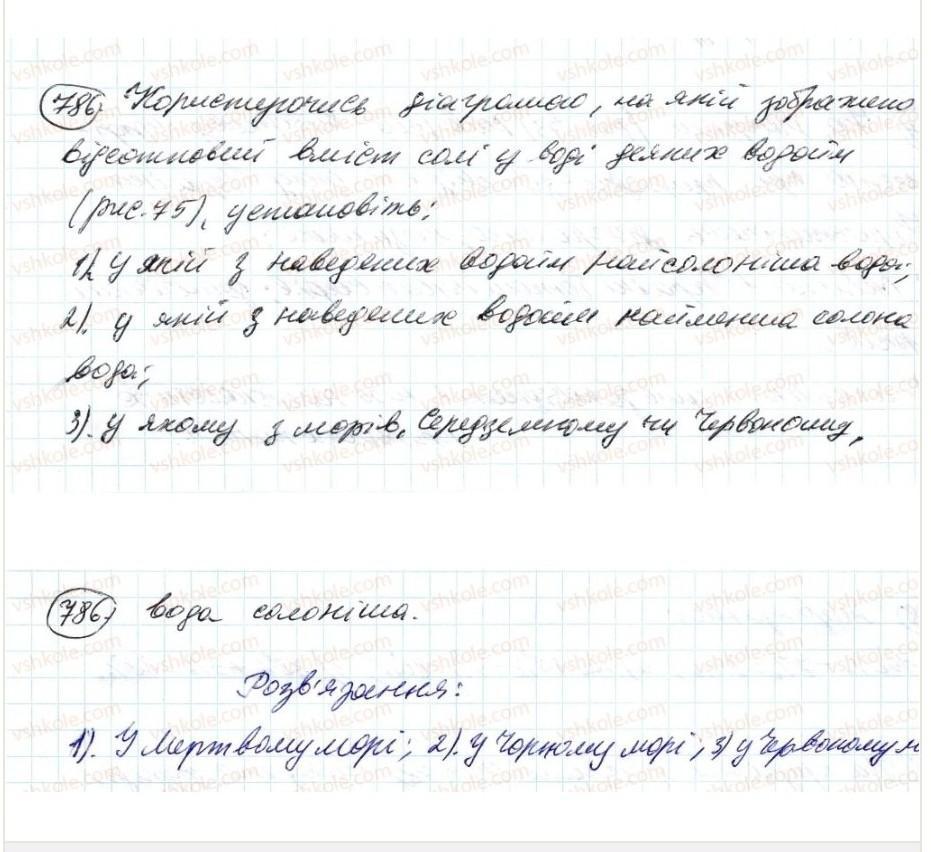 786) Користуючись діаграмою, на якій зображено
відсотковий вміст солі у воді деяких водойм
(рис. 75), установіть:
1). у якій з наведених водойм найсолоніша вода;
2). у якій з наведених водойм найменша солона
вода;
3). у якому з морів, Середземному чи Червоному,
786) вода солоніша.
Розв'язання:
1). У Мертвому морі; 2). у Чорному морі; 3) у Червоному м